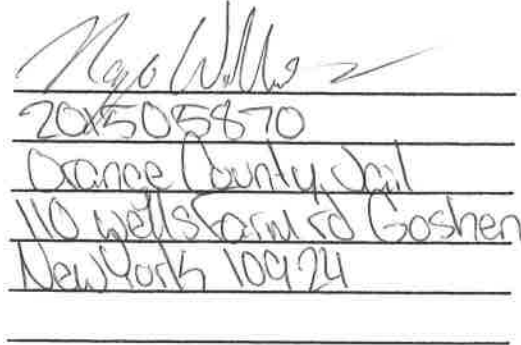 20X505870
Orange County Jail
110 wells farm rd Goshen
New York 10924